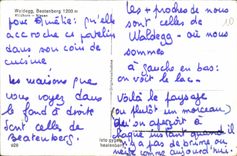 Waldegg, Beatenberg 1200 m
pour Amélie: qu'elle
accroche ce patelin
dans son coin de
cuisine.
Les maisons que
vous voyez dans
le fond à droite
sont celles de
Beatenberg.
les + proches de nous
sont celles de
Waldegg - où nous
sommes
à gauche en bas:
on voit le lac.
Voilà le paysage
(ou plutôt un morceau)
qu'on aperçoit à
chaque instant quand
il n'y a pas de brume ou
neige comme aujourd'hui.
10
foto
beatenberg